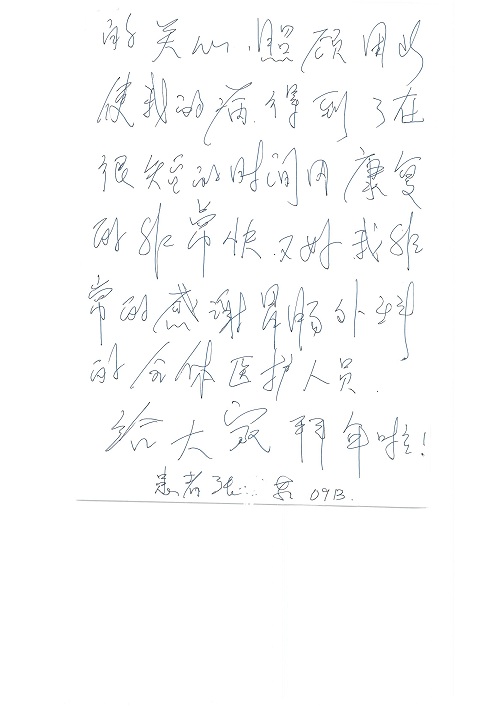 的关心.照顾因此
使我的病.得到了在
很短的时间内康复
的非常快.又好.我非
常的感谢胃肠外科
的全体医护人员.
给大家拜年啦!
患者张 09B.